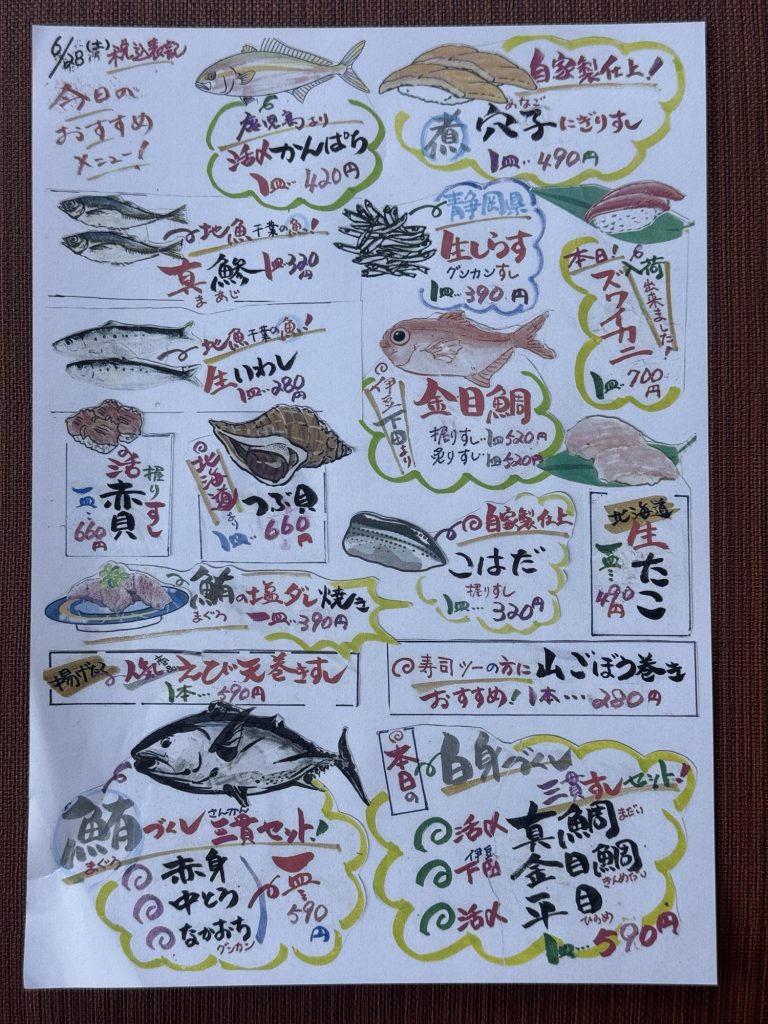 6/28(土)税込表記
今日の
おすすめ
メニュー!
鹿児島より
活〆かんぱち
1皿…420円
自家製仕上!
あなご
煮穴子にぎりすし
1皿…490円
地魚千葉の魚!
真鯵1皿320円
まあじ
静岡県
生しらす
グンカンすし
1皿…390円
本日!入荷出来ました!
ズワイカニ
1皿…700円
地魚千葉の魚!
生いわし
1皿…280円
伊豆下田より
金目鯛
握りすし…1皿520円
炙りすし…1皿520円
握りすし
活赤貝
一皿…660円
北海道より
つぶ貝
1皿…660円
自家製仕上
こはだ
握りすし
1皿…320円
北海道
生たこ
一皿…490円
鮪の塩ダレ焼き
まぐろ
一皿…390円
揚げたて人気商品えび天巻きすし
1本…590円
寿司ツーの方に山ごぼう巻き
おすすめ!1本…280円
鮪づくし三貫セット!
まぐろ
さんかん
赤身
中とろ
なかおち
グンカン
一皿…590円
本日の白身づくし
三貫すしセット!
活〆真鯛
まだい
伊豆下田金目鯛
きんめだい
活〆平目
ひらめ
1皿…590円